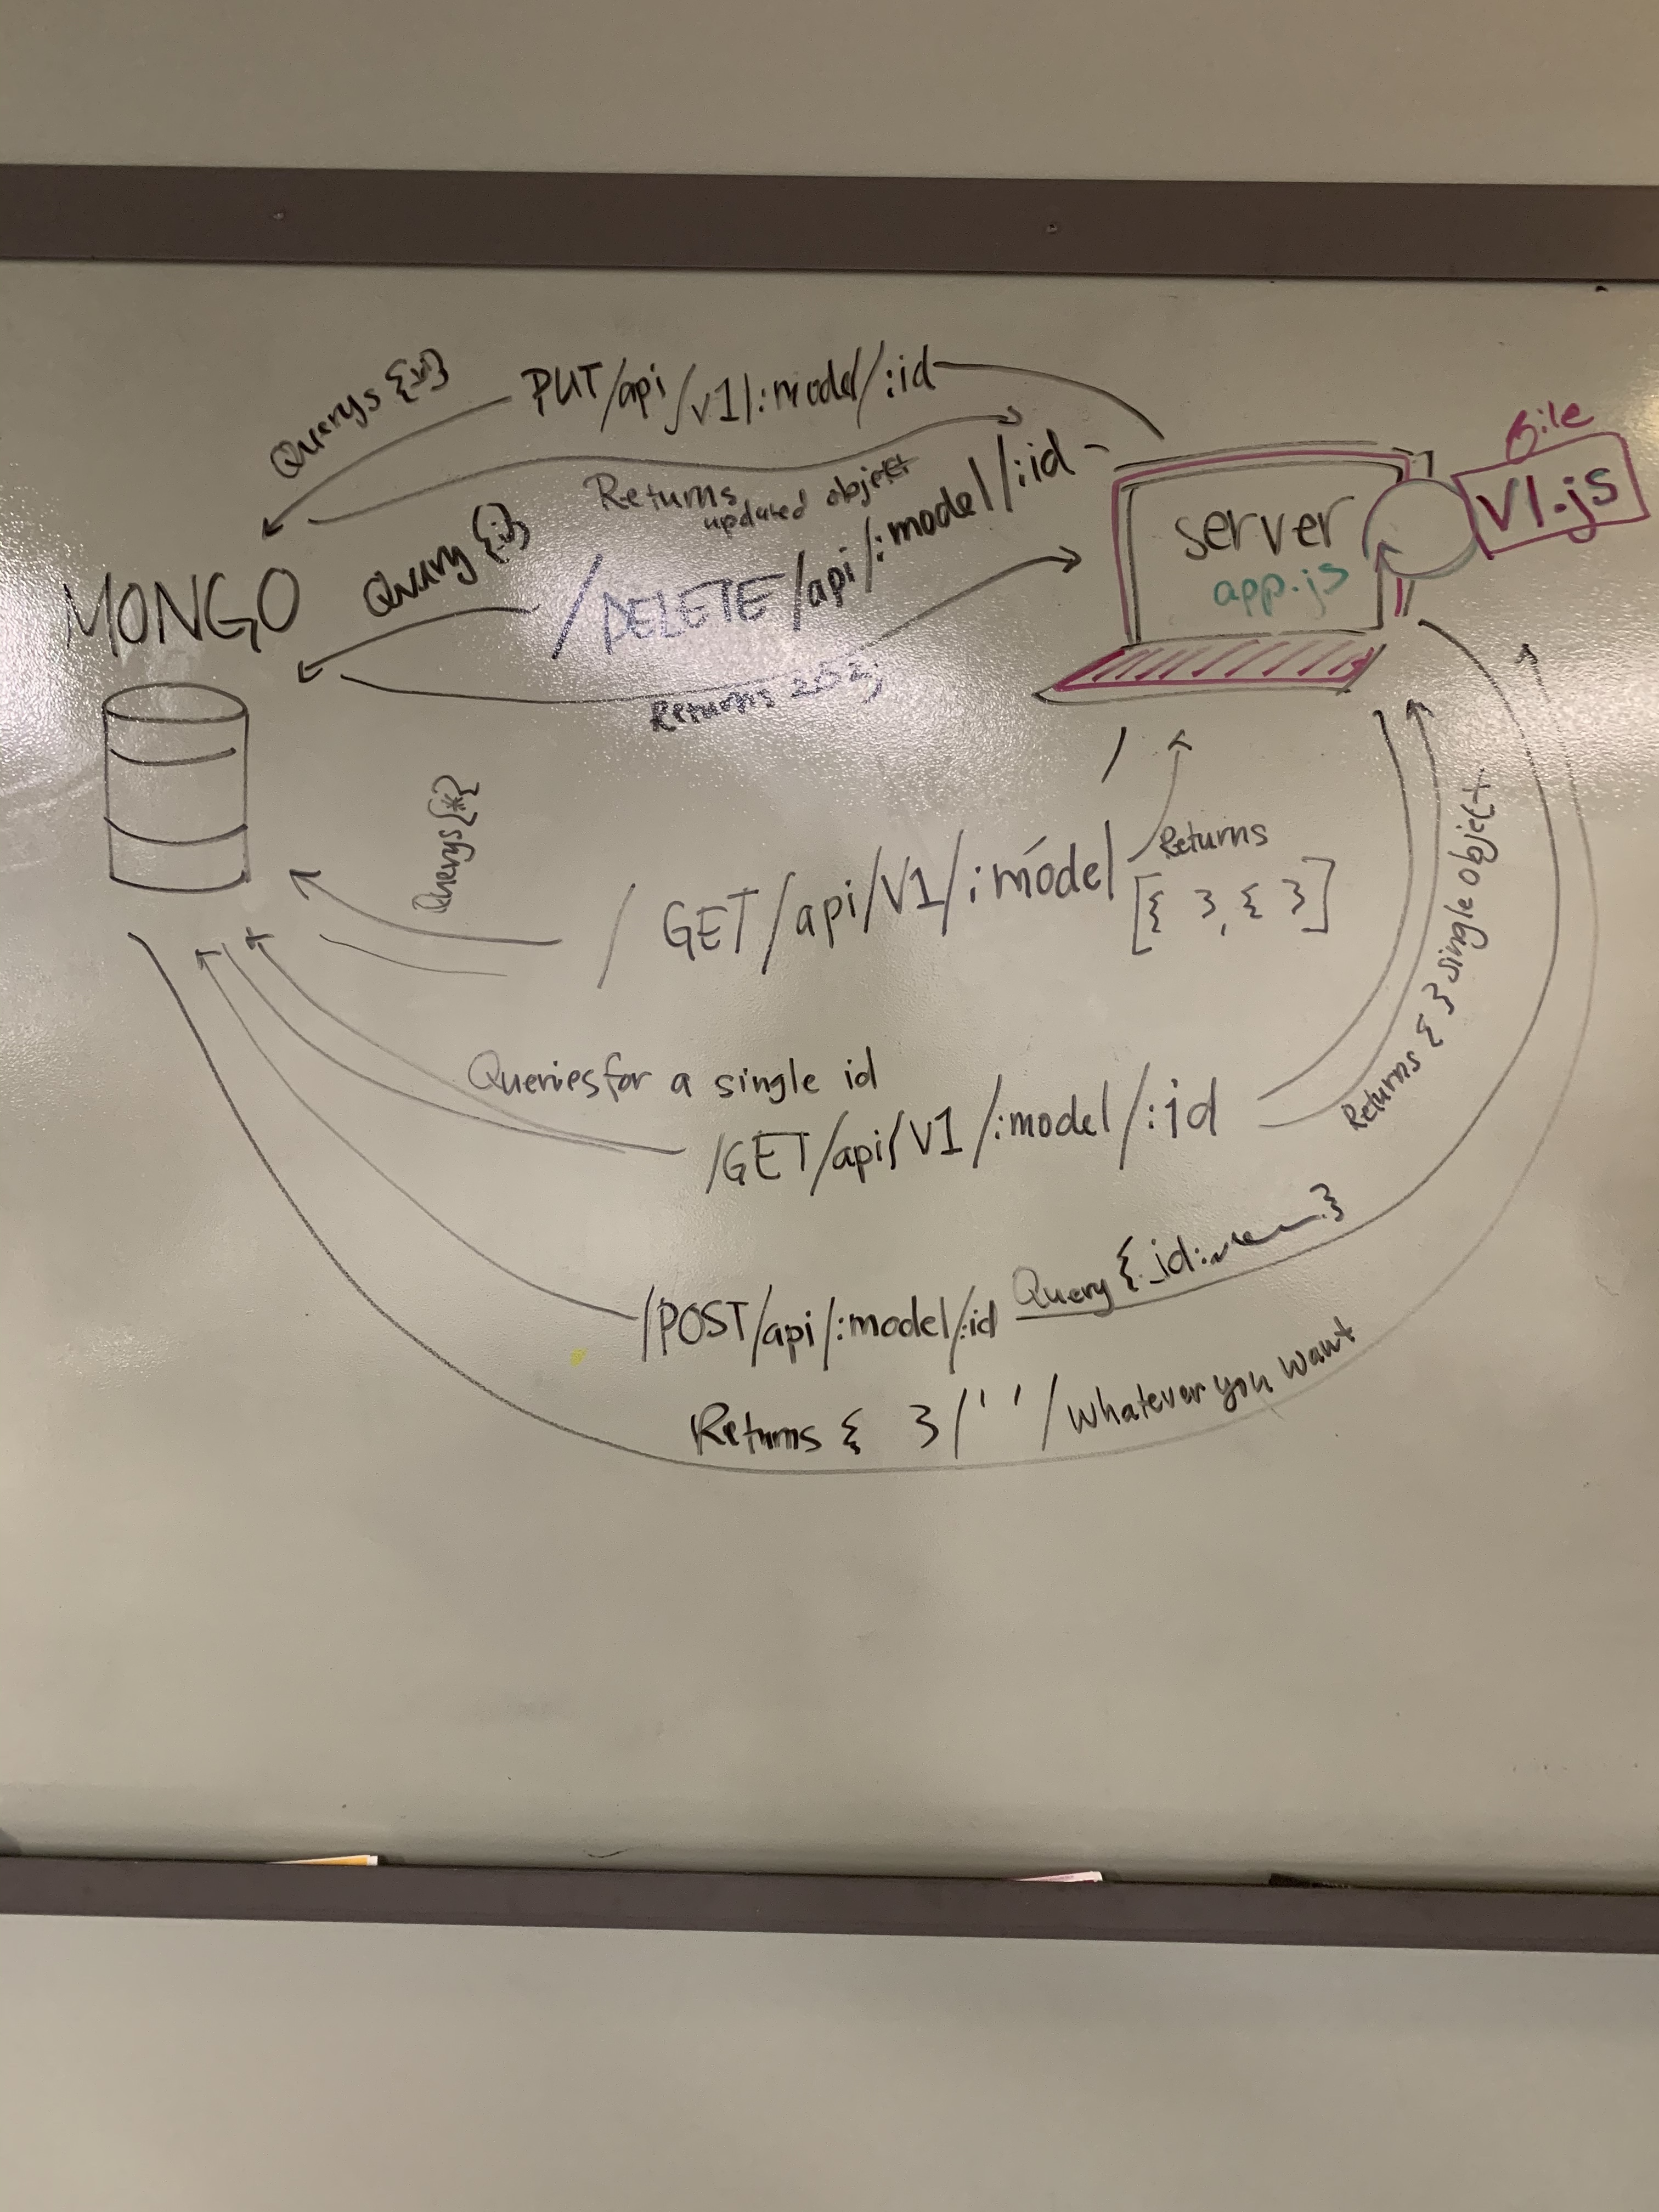 Querys {id}
PUT/api/v1/:model/:id
Returns
updated objekt
file
V1.js
server
app.js
MONGO
Query {id}
/DELETE/api/:model/:id
Returns 202;
Querys{*}
/ GET/api/V1/:model
Returns
[{ }, { }]
Queriesfor a single id
/GET/api/V1/:model/:id
Returns { } single object
/POST/api/:model/:id Query {_id: }
Returns { }/' '/whatever you want